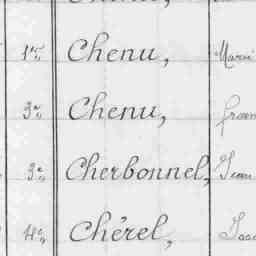 1re Chenu, Marie
3e Chenu,
3e Cherbonnel, Jean
4e Chérel,